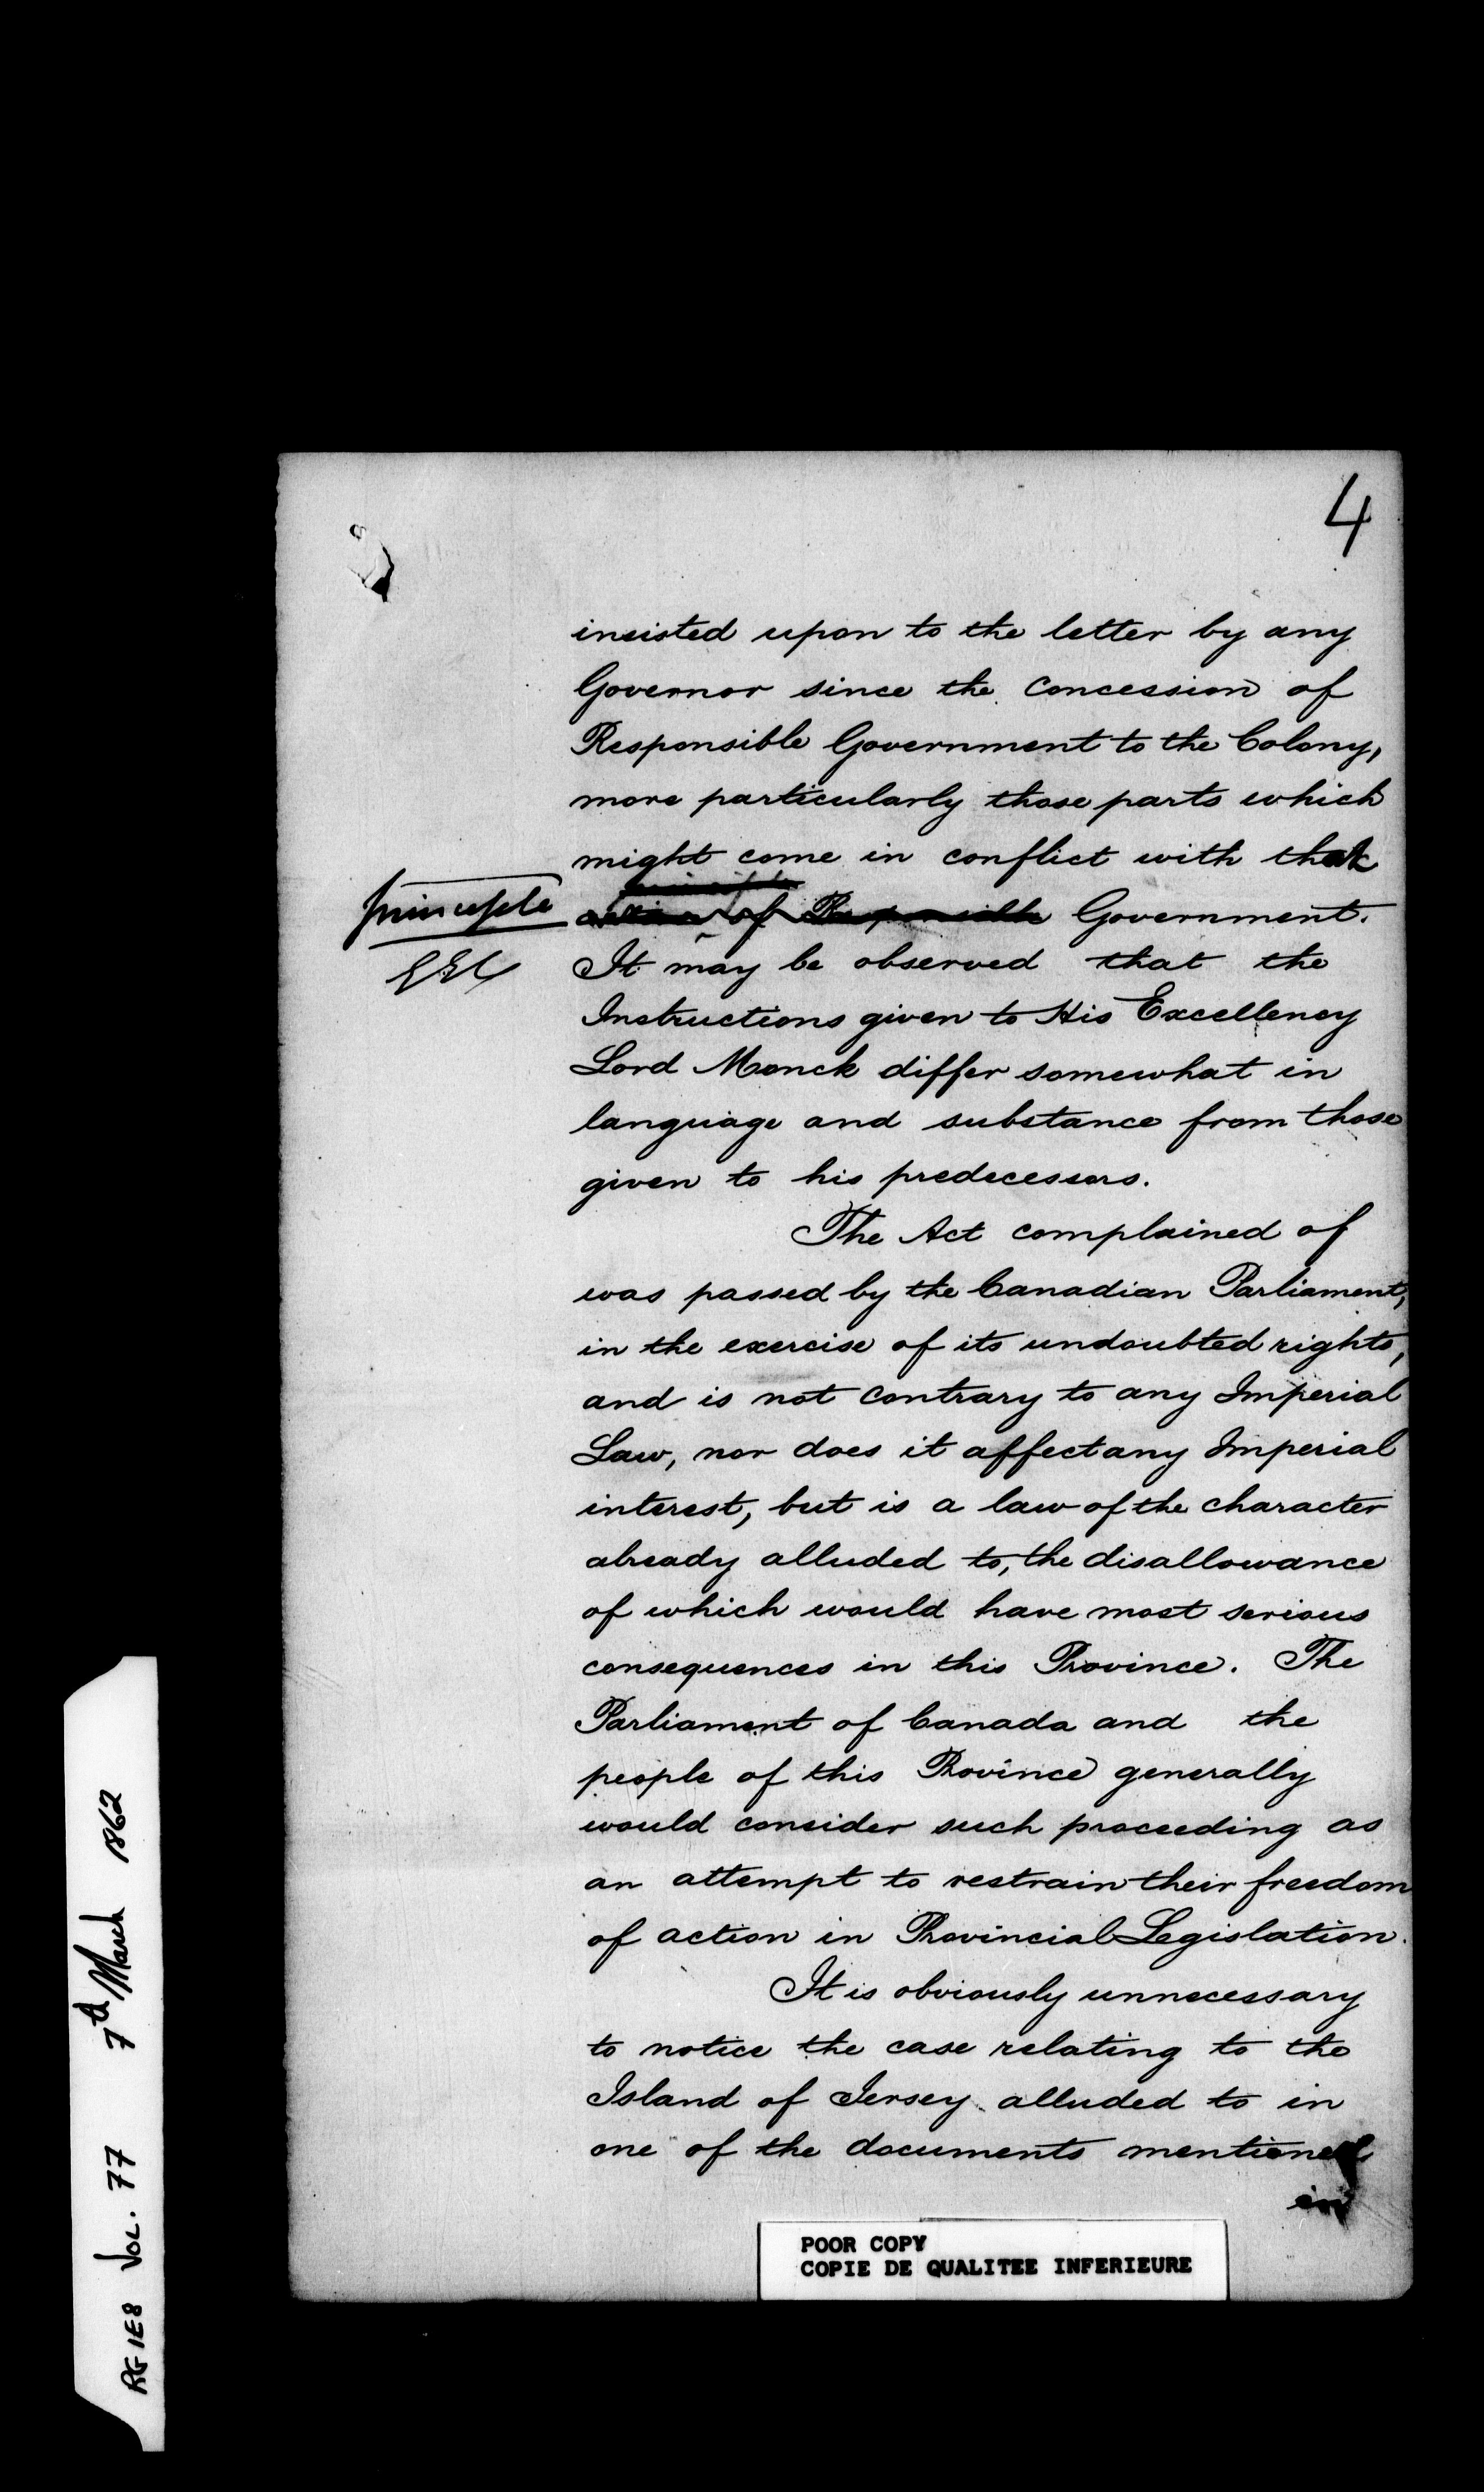 4
insisted upon to the letter by any
Governor since the concession of
Responsible Government to the Colony,
more particularly those parts which
might come in conflict with that
principle
action of Responsible Government.
principle
It may be observed that the
Instructions given to His Excellency
Lord Monck differ somewhat in
language and substance from those
given to his predecessors.
The Act complained of
was passed by the Canadian Parliament,
in the exercise of its undoubted rights,
and is not contrary to any Imperial
Law, nor does it affect any Imperial
interest, but is a law of the character
already alluded to, the disallowance
of which would have most serious
consequences in this Province. The
Parliament of Canada and the
people of this Province generally
would consider such proceeding as
an attempt to restrain their freedom
of action in Provincial Legislation.
It is obviously unnecessary
to notice the case relating to the
Island of Jersey alluded to in
one of the documents mentioned
in
POOR COPY
COPIE DE QUALITEE INFERIEURE
RG 1E8 VOL. 77 7th March 1862